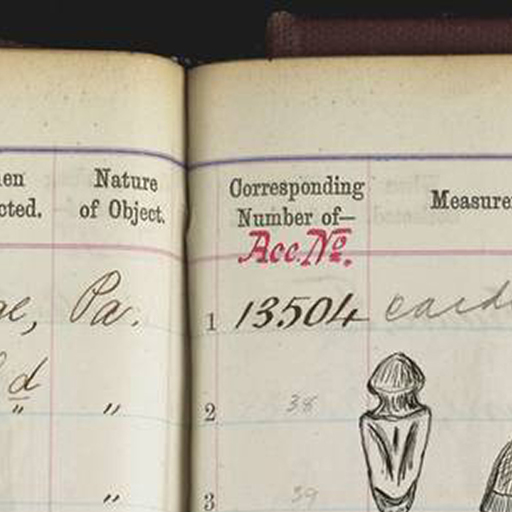 en
cted.
Nature
of Object.
Pa.
d
"
"
"
Corresponding
Number of—
Acc. No.
Measure
1 13504 card
2 38
3 39